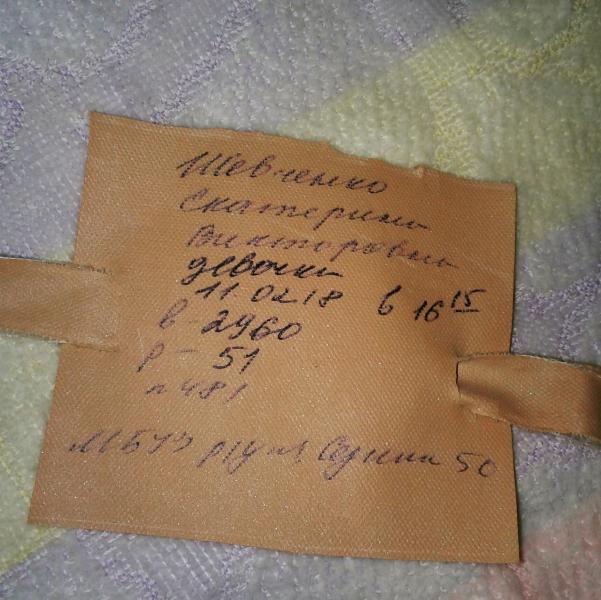 Шевченко
Екатерина
Викторовна
девочка
11.02.18 в 16 15
в - 2960
р - 51
п 481
МБУЗ 50